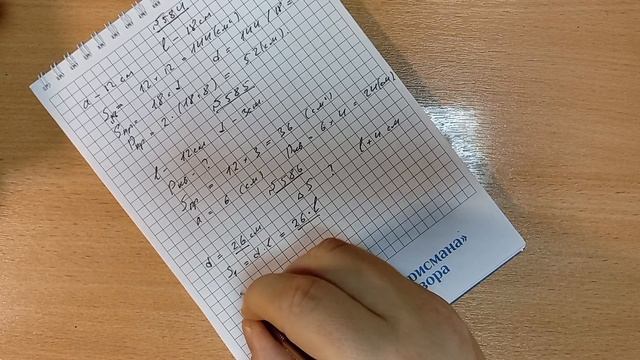 №584
a = 12 см l = 18 см
Sкв = 12 · 12 = 144 (см²) d = 144 / 18 =
Sпр = 18 · d
Pпр = 2 · (18 + 8) = 52 (см).
№585
l = 12 см d = 3 см
Pкв = ?
Sпр = 12 · 3 = 36 (см²)
a = 6 (см) Pкв = 6 · 4 = 24 (см)
№586
d = 26 см ΔS ? l + 4 см
S₁ = d · l = 26 · l
рисмана»
вора